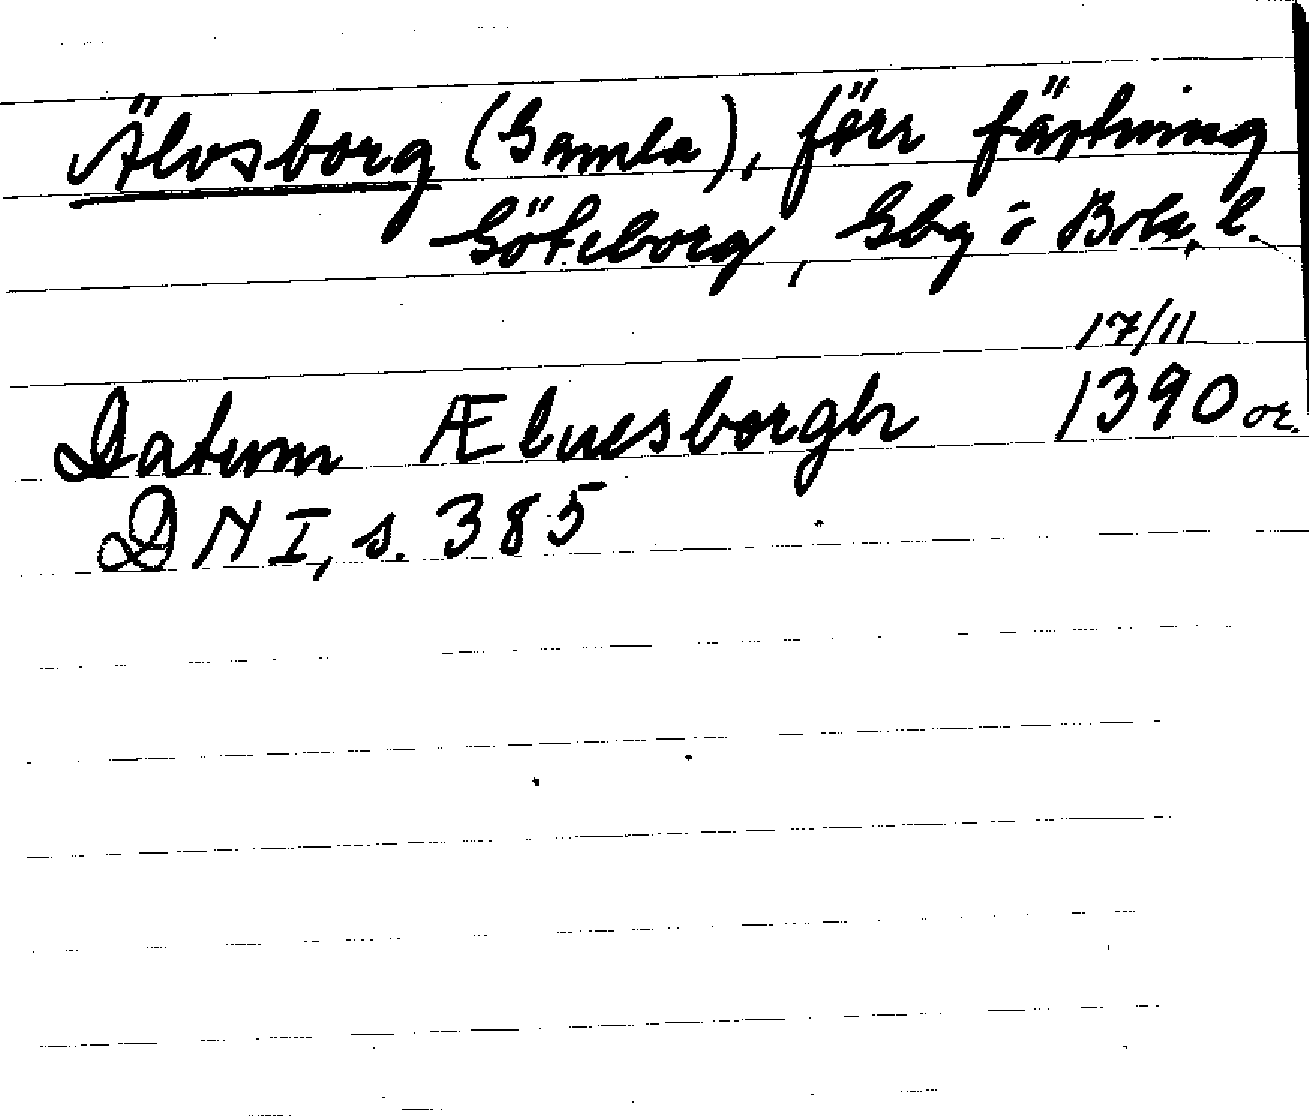 Älvsborg (Gamla), förr fästning
Göteborg, Gbg o Boh. l.
17/11
Datum Ælwesborgh 1390 or.
DN I, s. 385